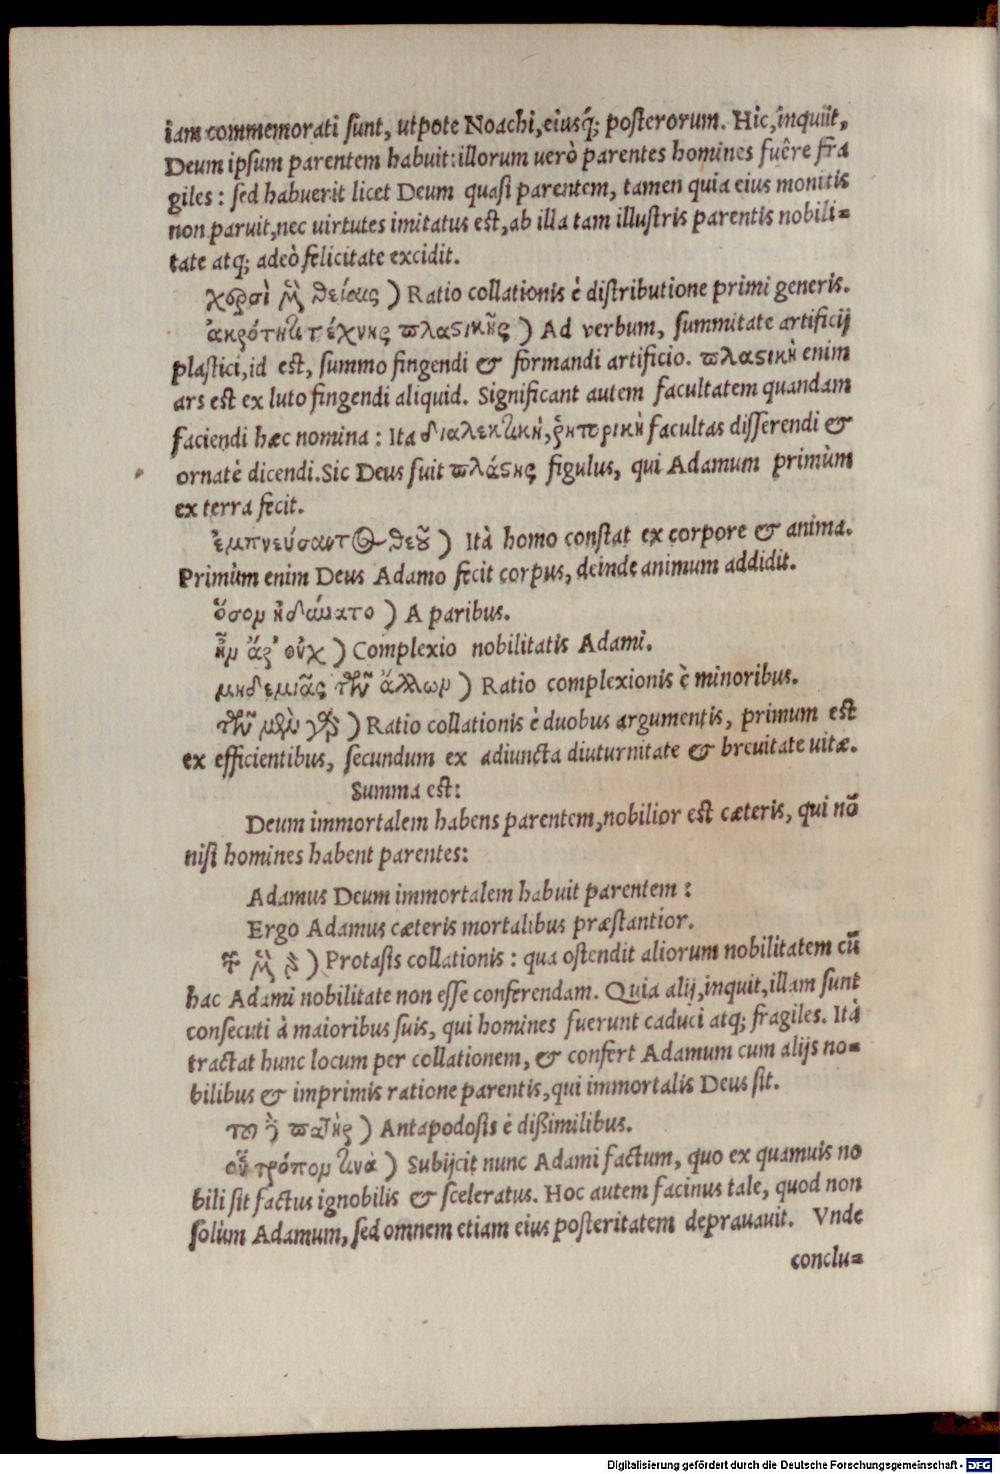 iam commemorati sunt, utpote Noachi, eiusq́; posterorum. Hic, inquiit,
Deum ipsum parentem habuit: illorum uerò parentes homines fuêre fra
giles: sed habuerit licet Deum quasi parentem, tamen quia eius monitis
non paruit, nec uirtutes imitatus est, ab illa tam illustris parentis nobili=
tate atq; adeò felicitate excidit.
χερσὶ θείαις) Ratio collationis è distributione primi generis.
ἀκρότητι τέχνης πλαστικῆς) Ad verbum, summitate artificij
plastici, id est, summo fingendi & formandi artificio. πλαστικὴ enim
ars est ex luto fingendi aliquid. Significant autem facultatem quandam
faciendi hæc nomina: Ita διαλεκτικὴ, ῥητορικὴ facultas disserendi &
ornatè dicendi. Sic Deus fuit πλάστης figulus, qui Adamum primùm
ex terra fecit.
ἐμπνεύσαντος θεοῦ) Ità homo constat ex corpore & anima.
Primùm enim Deus Adamo fecit corpus, deinde animum addidit.
ὅσον ἠδύνατο) A paribus.
ἦν ἄρ' οὐχ) Complexio nobilitatis Adami.
μηδεμιᾶς τῶν ἄλλων) Ratio complexionis è minoribus.
τῶν μὲν γὰρ) Ratio collationis è duobus argumentis, primum est
ex efficientibus, secundum ex adiuncta diuturnitate & breuitate uitæ.
Summa est:
Deum immortalem habens parentem, nobilior est cæteris, qui nō
nisi homines habent parentes:
Adamus Deum immortalem habuit parentem:
Ergo Adamus cæteris mortalibus præstantior.
Protasis collationis: qua ostendit aliorum nobilitatem cū
hac Adami nobilitate non esse conferendam. Quia alij, inquit, illam sunt
consecuti à maioribus suis, qui homines fuerunt caduci atq; fragiles. Ità
tractat hunc locum per collationem, & confert Adamum cum alijs no=
bilibus & imprimis ratione parentis, qui immortalis Deus sit.
τῷ δὲ πατὴρ) Antapodosis è dißimilibus.
οὗ τρόπον τινὰ) Subijcit nunc Adami factum, quo ex quamuis no
bili sit factus ignobilis & sceleratus. Hoc autem facinus tale, quod non
solùm Adamum, sed omnem etiam eius posteritatem deprauauit. Vnde
conclu=
Digitalisierung gefördert durch die Deutsche Forschungsgemeinschaft - DFG